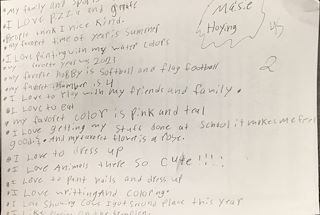 • My family and sports
• I LOVE Pizza and
• People think I nice Kind.
• my favorite time of year is Summer
• I Love panting with my water colors
• My favorite year was 2023
• my favorite hobby is softball and flag football
• my favorite number is 4
• I Love to Play with my friends and family.
• I Love to eat
• my favorit color is pink and teal
• I Love getting my Stuff done at School it makes me feel
good. And my favorit flower is a rose.
• I Love to dress up
• I Love Animals there so cute!!!!
• I Love to paint nails and dress up
• I Love writting And coloring.
• I Love Showing cows I got second place this year
Masie
Hoying
2